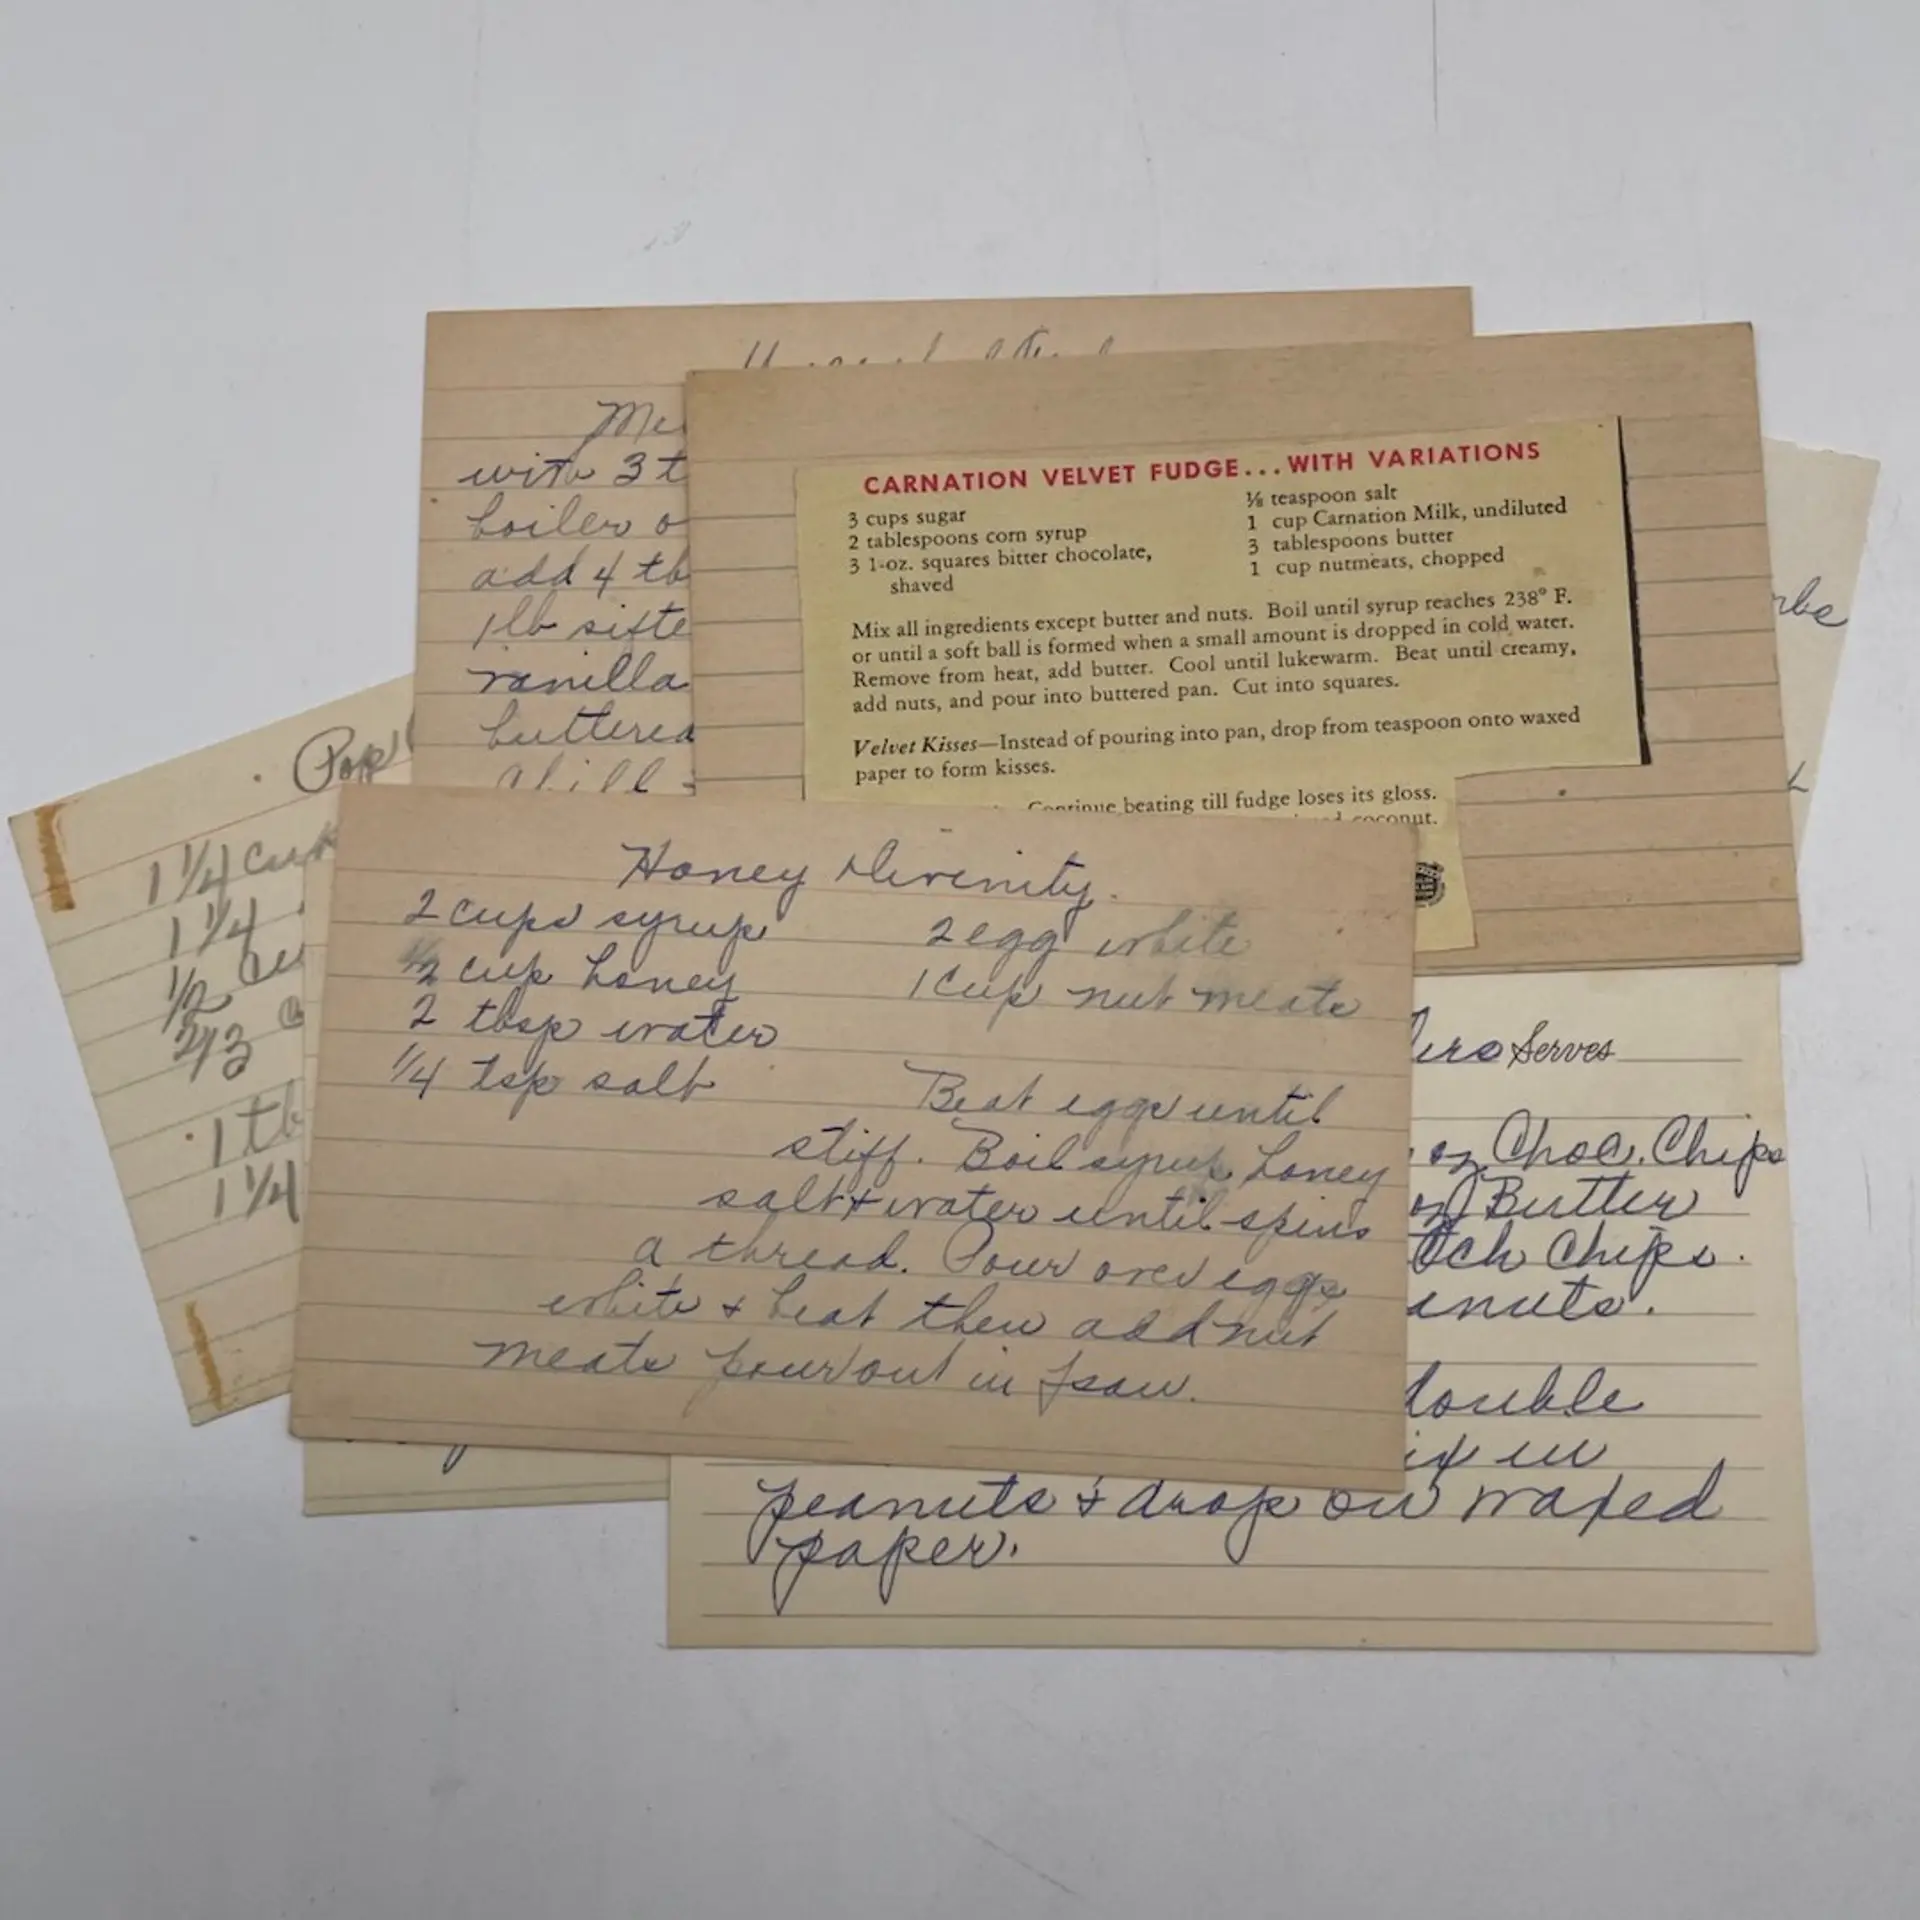 with 3 t
boiler o
add 4 tb
1 lb sifte
vanilla
buttered
chill
CARNATION VELVET FUDGE...WITH VARIATIONS
3 cups sugar
2 tablespoons corn syrup
3 1-oz. squares bitter chocolate,
shaved
⅛ teaspoon salt
1 cup Carnation Milk, undiluted
3 tablespoons butter
1 cup nutmeats, chopped
Mix all ingredients except butter and nuts. Boil until syrup reaches 238° F.
or until a soft ball is formed when a small amount is dropped in cold water.
Remove from heat, add butter. Cool until lukewarm. Beat until creamy,
add nuts, and pour into buttered pan. Cut into squares.
Velvet Kisses—Instead of pouring into pan, drop from teaspoon onto waxed
paper to form kisses.
Continue beating till fudge loses its gloss.
coconut.
Pop
1 1/4 cup
1 1/4
1/2 cu
2/3 c
1 tb
1 1/4
Honey Divinity.
2 cups syrup
1/2 cup honey
2 tbsp water
1/4 tsp salt
2 egg white
1 cup nut meats
Beat eggs until
stiff. Boil syrup, honey
salt + water until spins
a thread. Pour over eggs
white + beat then add nut
meats pour out in pan.
Serves
oz Choc. Chips
oz Butter
tch Chips.
anuts.
double
ix in
peanuts & drop on waxed
paper.